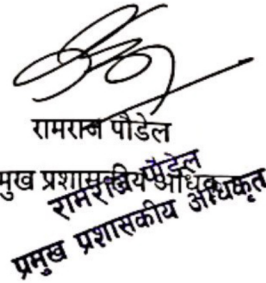 रामराज पौडेल
मुख प्रशासकीय अधिकृत
रामराज पौडेल
प्रमुख प्रशासकीय अधिकृत